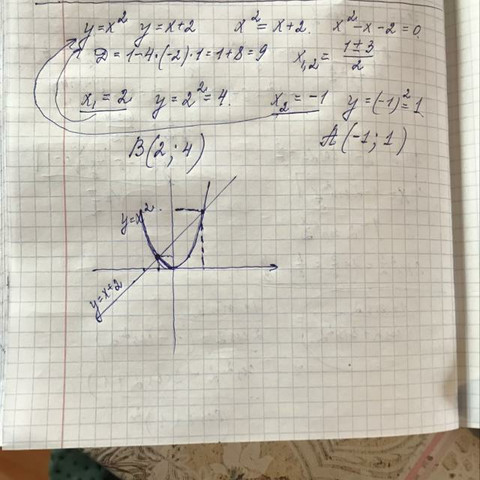 y=x² y=x+2 x²=x+2. x²-x-2=0.
D=1-4·(-2)·1=1+8=9 x₁,₂=(1±3)/2
x₁=2 y=2²=4. x₂=-1 y=(-1)²=1
B(2;4) A(-1;1)
y=x²
y=x+2